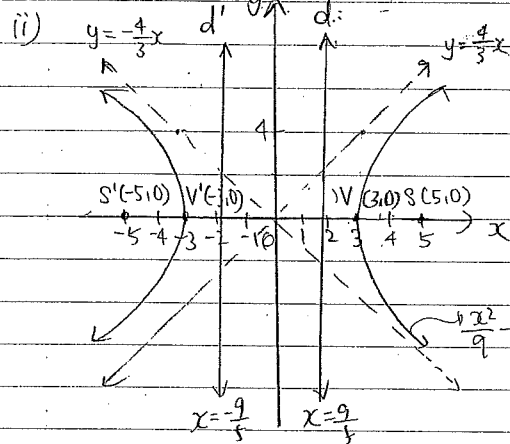 (ii)
y = -4/3 x
d'
y
d
y = 4/3 x
4
S'(-5,0) V'(-3,0) V (3,0) S(5,0)
-5 -4 -3 -2 -1 0 1 2 3 4 5 x
x²/9 -
x = -9/5 x = 9/5